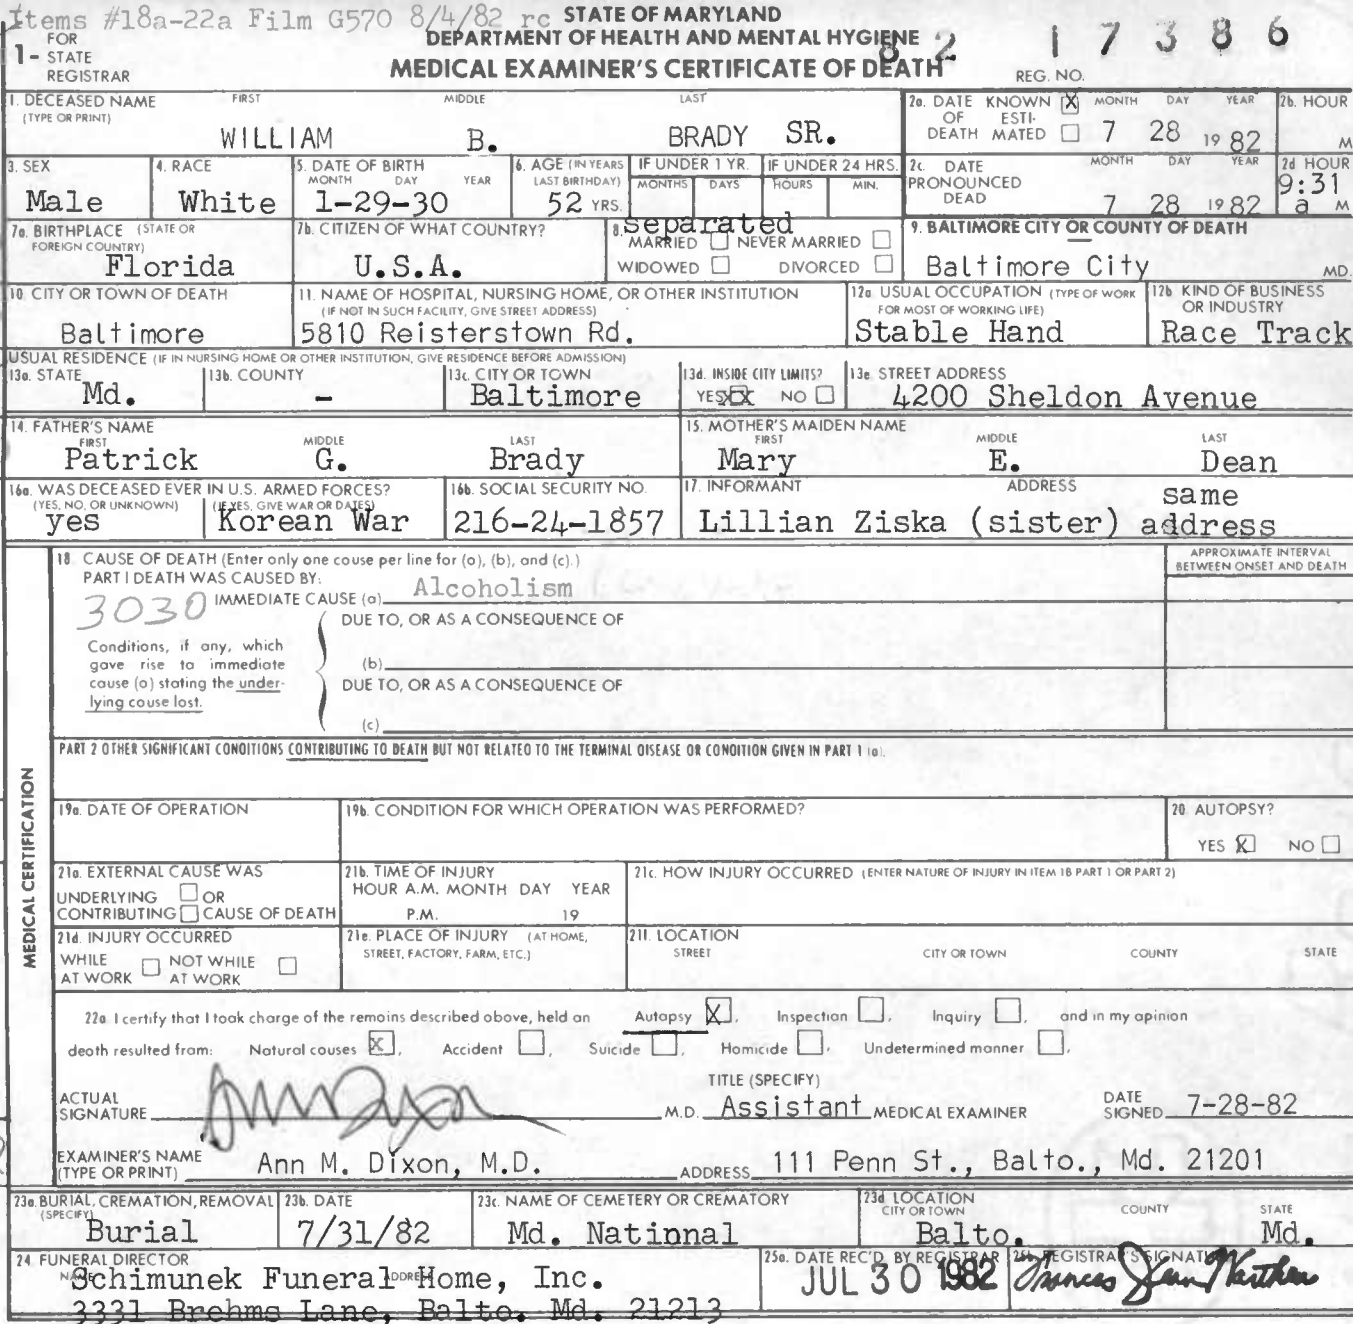 Items #18a-22a Film G570 8/4/82 rc
STATE OF MARYLAND
DEPARTMENT OF HEALTH AND MENTAL HYGIENE
MEDICAL EXAMINER'S CERTIFICATE OF DEATH
1- FOR STATE REGISTRAR
82 17386
REG. NO.
1. DECEASED NAME (TYPE OR PRINT) FIRST MIDDLE LAST
WILLIAM B. BRADY SR.
2a. DATE OF DEATH KNOWN [X] ESTIMATED [ ] MONTH DAY YEAR
7 28 1982
2b. HOUR
M
3. SEX
Male
4. RACE
White
5. DATE OF BIRTH
MONTH DAY YEAR
1-29-30
6. AGE (IN YEARS LAST BIRTHDAY)
52 YRS.
IF UNDER 1 YR.
MONTHS DAYS
IF UNDER 24 HRS.
HOURS MIN.
2c. DATE PRONOUNCED DEAD MONTH DAY YEAR
7 28 1982
2d HOUR
9:31
a M
7a. BIRTHPLACE (STATE OR FOREIGN COUNTRY)
Florida
7b. CITIZEN OF WHAT COUNTRY?
U.S.A.
8. separated
MARRIED NEVER MARRIED
WIDOWED DIVORCED
9. BALTIMORE CITY OR COUNTY OF DEATH
Baltimore City MD.
10 CITY OR TOWN OF DEATH
Baltimore
11. NAME OF HOSPITAL, NURSING HOME, OR OTHER INSTITUTION
(IF NOT IN SUCH FACILITY, GIVE STREET ADDRESS)
5810 Reisterstown Rd.
12a USUAL OCCUPATION (TYPE OF WORK FOR MOST OF WORKING LIFE)
Stable Hand
12b KIND OF BUSINESS OR INDUSTRY
Race Track
USUAL RESIDENCE (IF IN NURSING HOME OR OTHER INSTITUTION, GIVE RESIDENCE BEFORE ADMISSION)
13a. STATE
Md.
13b. COUNTY
-
13c. CITY OR TOWN
Baltimore
13d. INSIDE CITY LIMITS?
YES XX NO
13e STREET ADDRESS
4200 Sheldon Avenue
14. FATHER'S NAME
FIRST MIDDLE LAST
Patrick G. Brady
15. MOTHER'S MAIDEN NAME
FIRST MIDDLE LAST
Mary E. Dean
16a. WAS DECEASED EVER IN U.S. ARMED FORCES?
(YES, NO, OR UNKNOWN) (IF YES, GIVE WAR OR DATES)
yes Korean War
16b. SOCIAL SECURITY NO.
216-24-1857
17. INFORMANT ADDRESS
Lillian Ziska (sister) same address
18 CAUSE OF DEATH (Enter only one cause per line for (a), (b), and (c).)
APPROXIMATE INTERVAL BETWEEN ONSET AND DEATH
PART I DEATH WAS CAUSED BY:
3030 IMMEDIATE CAUSE (a) Alcoholism
DUE TO, OR AS A CONSEQUENCE OF
Conditions, if any, which
gave rise to immediate
cause (a) stating the under-
lying cause last.
(b)
DUE TO, OR AS A CONSEQUENCE OF
(c)
PART 2 OTHER SIGNIFICANT CONDITIONS CONTRIBUTING TO DEATH BUT NOT RELATED TO THE TERMINAL DISEASE OR CONDITION GIVEN IN PART 1 (a).
MEDICAL CERTIFICATION
19a. DATE OF OPERATION
19b. CONDITION FOR WHICH OPERATION WAS PERFORMED?
20 AUTOPSY?
YES X NO
21a. EXTERNAL CAUSE WAS
UNDERLYING OR
CONTRIBUTING CAUSE OF DEATH
21b. TIME OF INJURY
HOUR A.M. MONTH DAY YEAR
P.M. 19
21c. HOW INJURY OCCURRED (ENTER NATURE OF INJURY IN ITEM 18 PART 1 OR PART 2)
21d. INJURY OCCURRED
WHILE AT WORK NOT WHILE AT WORK
21e. PLACE OF INJURY (AT HOME, STREET, FACTORY, FARM, ETC.)
21f. LOCATION
STREET CITY OR TOWN COUNTY STATE
22a I certify that I took charge of the remains described above, held an Autopsy X, Inspection, Inquiry, and in my opinion
death resulted from: Natural causes X, Accident, Suicide, Homicide, Undetermined manner.
ACTUAL SIGNATURE
M.D.
TITLE (SPECIFY)
Assistant MEDICAL EXAMINER
DATE SIGNED 7-28-82
EXAMINER'S NAME (TYPE OR PRINT) Ann M. Dixon, M.D.
ADDRESS 111 Penn St., Balto., Md. 21201
23a. BURIAL, CREMATION, REMOVAL (SPECIFY)
Burial
23b. DATE
7/31/82
23c. NAME OF CEMETERY OR CREMATORY
Md. National
23d LOCATION
CITY OR TOWN COUNTY STATE
Balto. Md.
24 FUNERAL DIRECTOR
NAME ADDRESS
Schimunek Funeral Home, Inc.
3331 Brehms Lane, Balto. Md. 21213
25a. DATE REC'D. BY REGISTRAR
JUL 30 1982
25b. REGISTRAR'S SIGNATURE